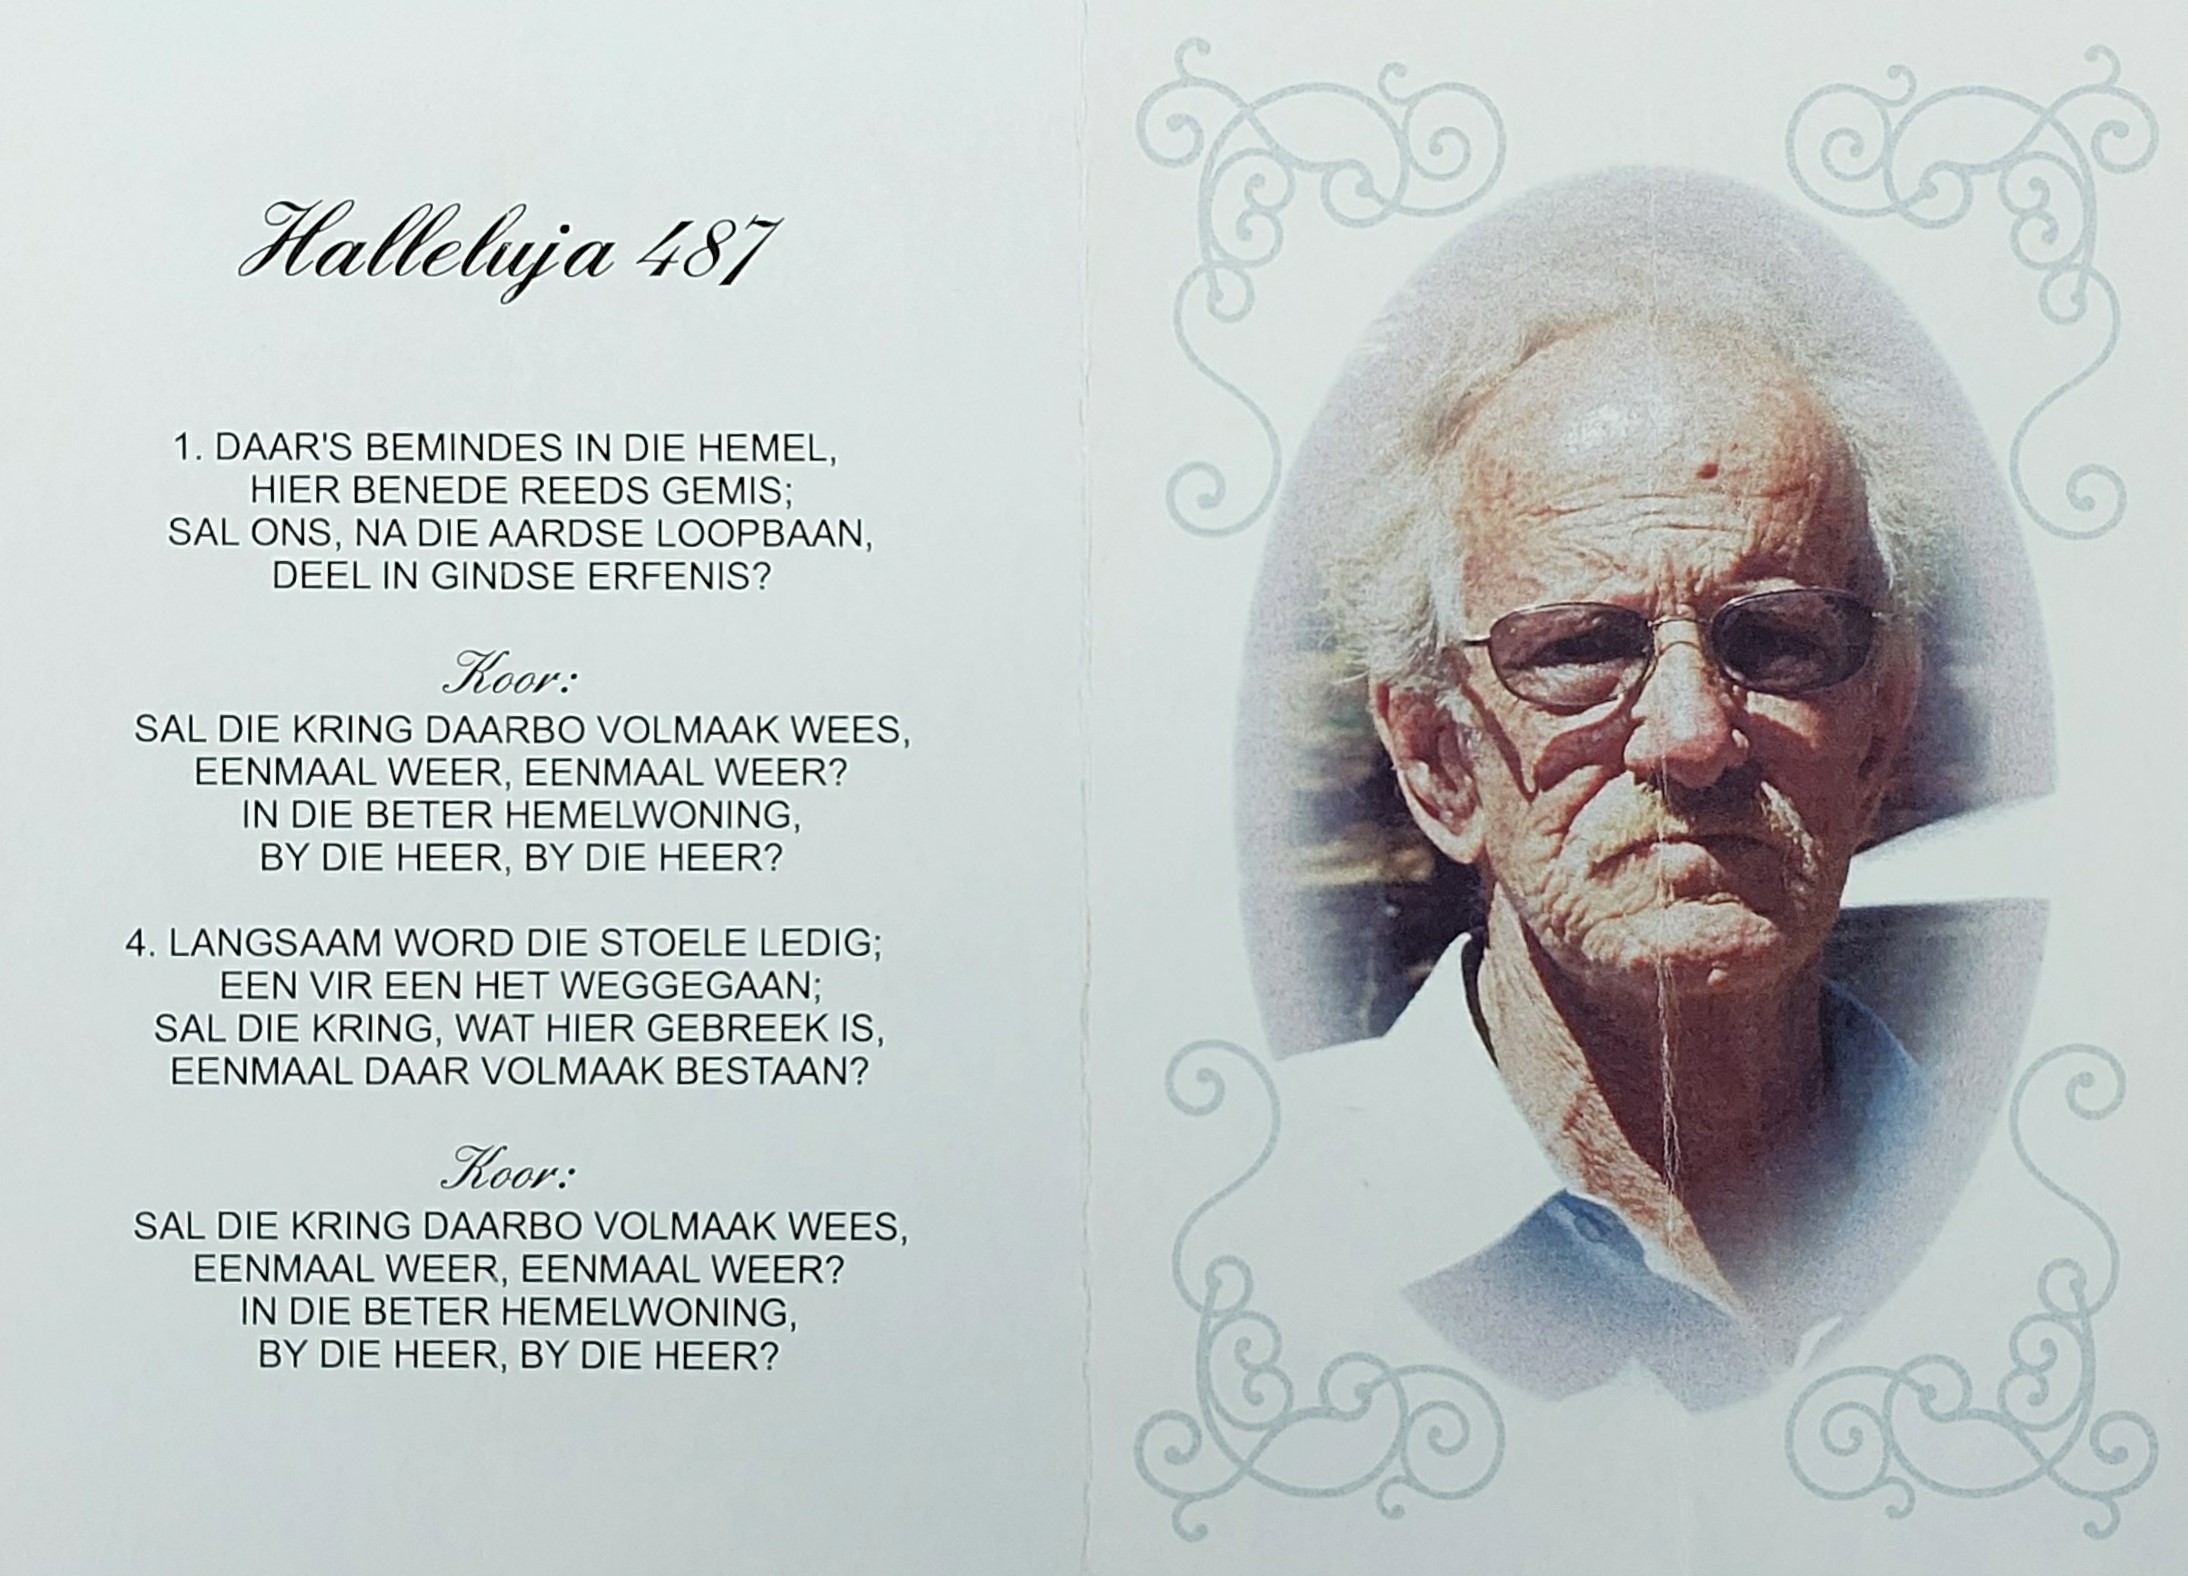 Halleluja 487
1. DAAR'S BEMINDES IN DIE HEMEL,
HIER BENEDE REEDS GEMIS;
SAL ONS, NA DIE AARDSE LOOPBAAN,
DEEL IN GINDSE ERFENIS?
Koor:
SAL DIE KRING DAARBO VOLMAAK WEES,
EENMAAL WEER, EENMAAL WEER?
IN DIE BETER HEMELWONING,
BY DIE HEER, BY DIE HEER?
4. LANGSAAM WORD DIE STOELE LEDIG;
EEN VIR EEN HET WEGGEGAAN;
SAL DIE KRING, WAT HIER GEBREEK IS,
EENMAAL DAAR VOLMAAK BESTAAN?
Koor:
SAL DIE KRING DAARBO VOLMAAK WEES,
EENMAAL WEER, EENMAAL WEER?
IN DIE BETER HEMELWONING,
BY DIE HEER, BY DIE HEER?